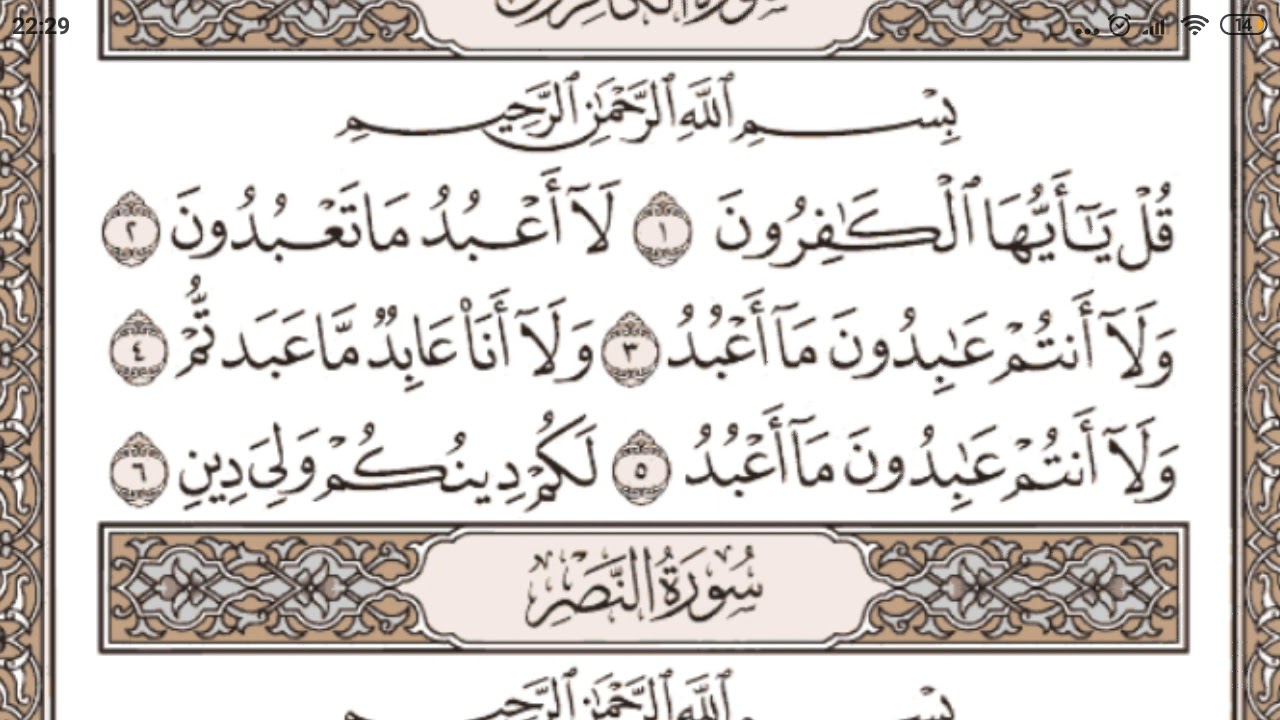 22:29
14
سُورَةُ الكَافِرُونَ
بِسْمِ ٱللَّهِ ٱلرَّحْمَٰنِ ٱلرَّحِيمِ
قُلْ يَٰٓأَيُّهَا ٱلْكَٰفِرُونَ ١ لَآ أَعْبُدُ مَا تَعْبُدُونَ ٢
وَلَآ أَنتُمْ عَٰبِدُونَ مَآ أَعْبُدُ ٣ وَلَآ أَنَا۠ عَابِدٌ مَّا عَبَدتُّمْ ٤
وَلَآ أَنتُمْ عَٰبِدُونَ مَآ أَعْبُدُ ٥ لَكُمْ دِينُكُمْ وَلِىَ دِينِ ٦
سُورَةُ النَّصْرِ
بِسْمِ ٱللَّهِ ٱلرَّحْمَٰنِ ٱلرَّحِيمِ